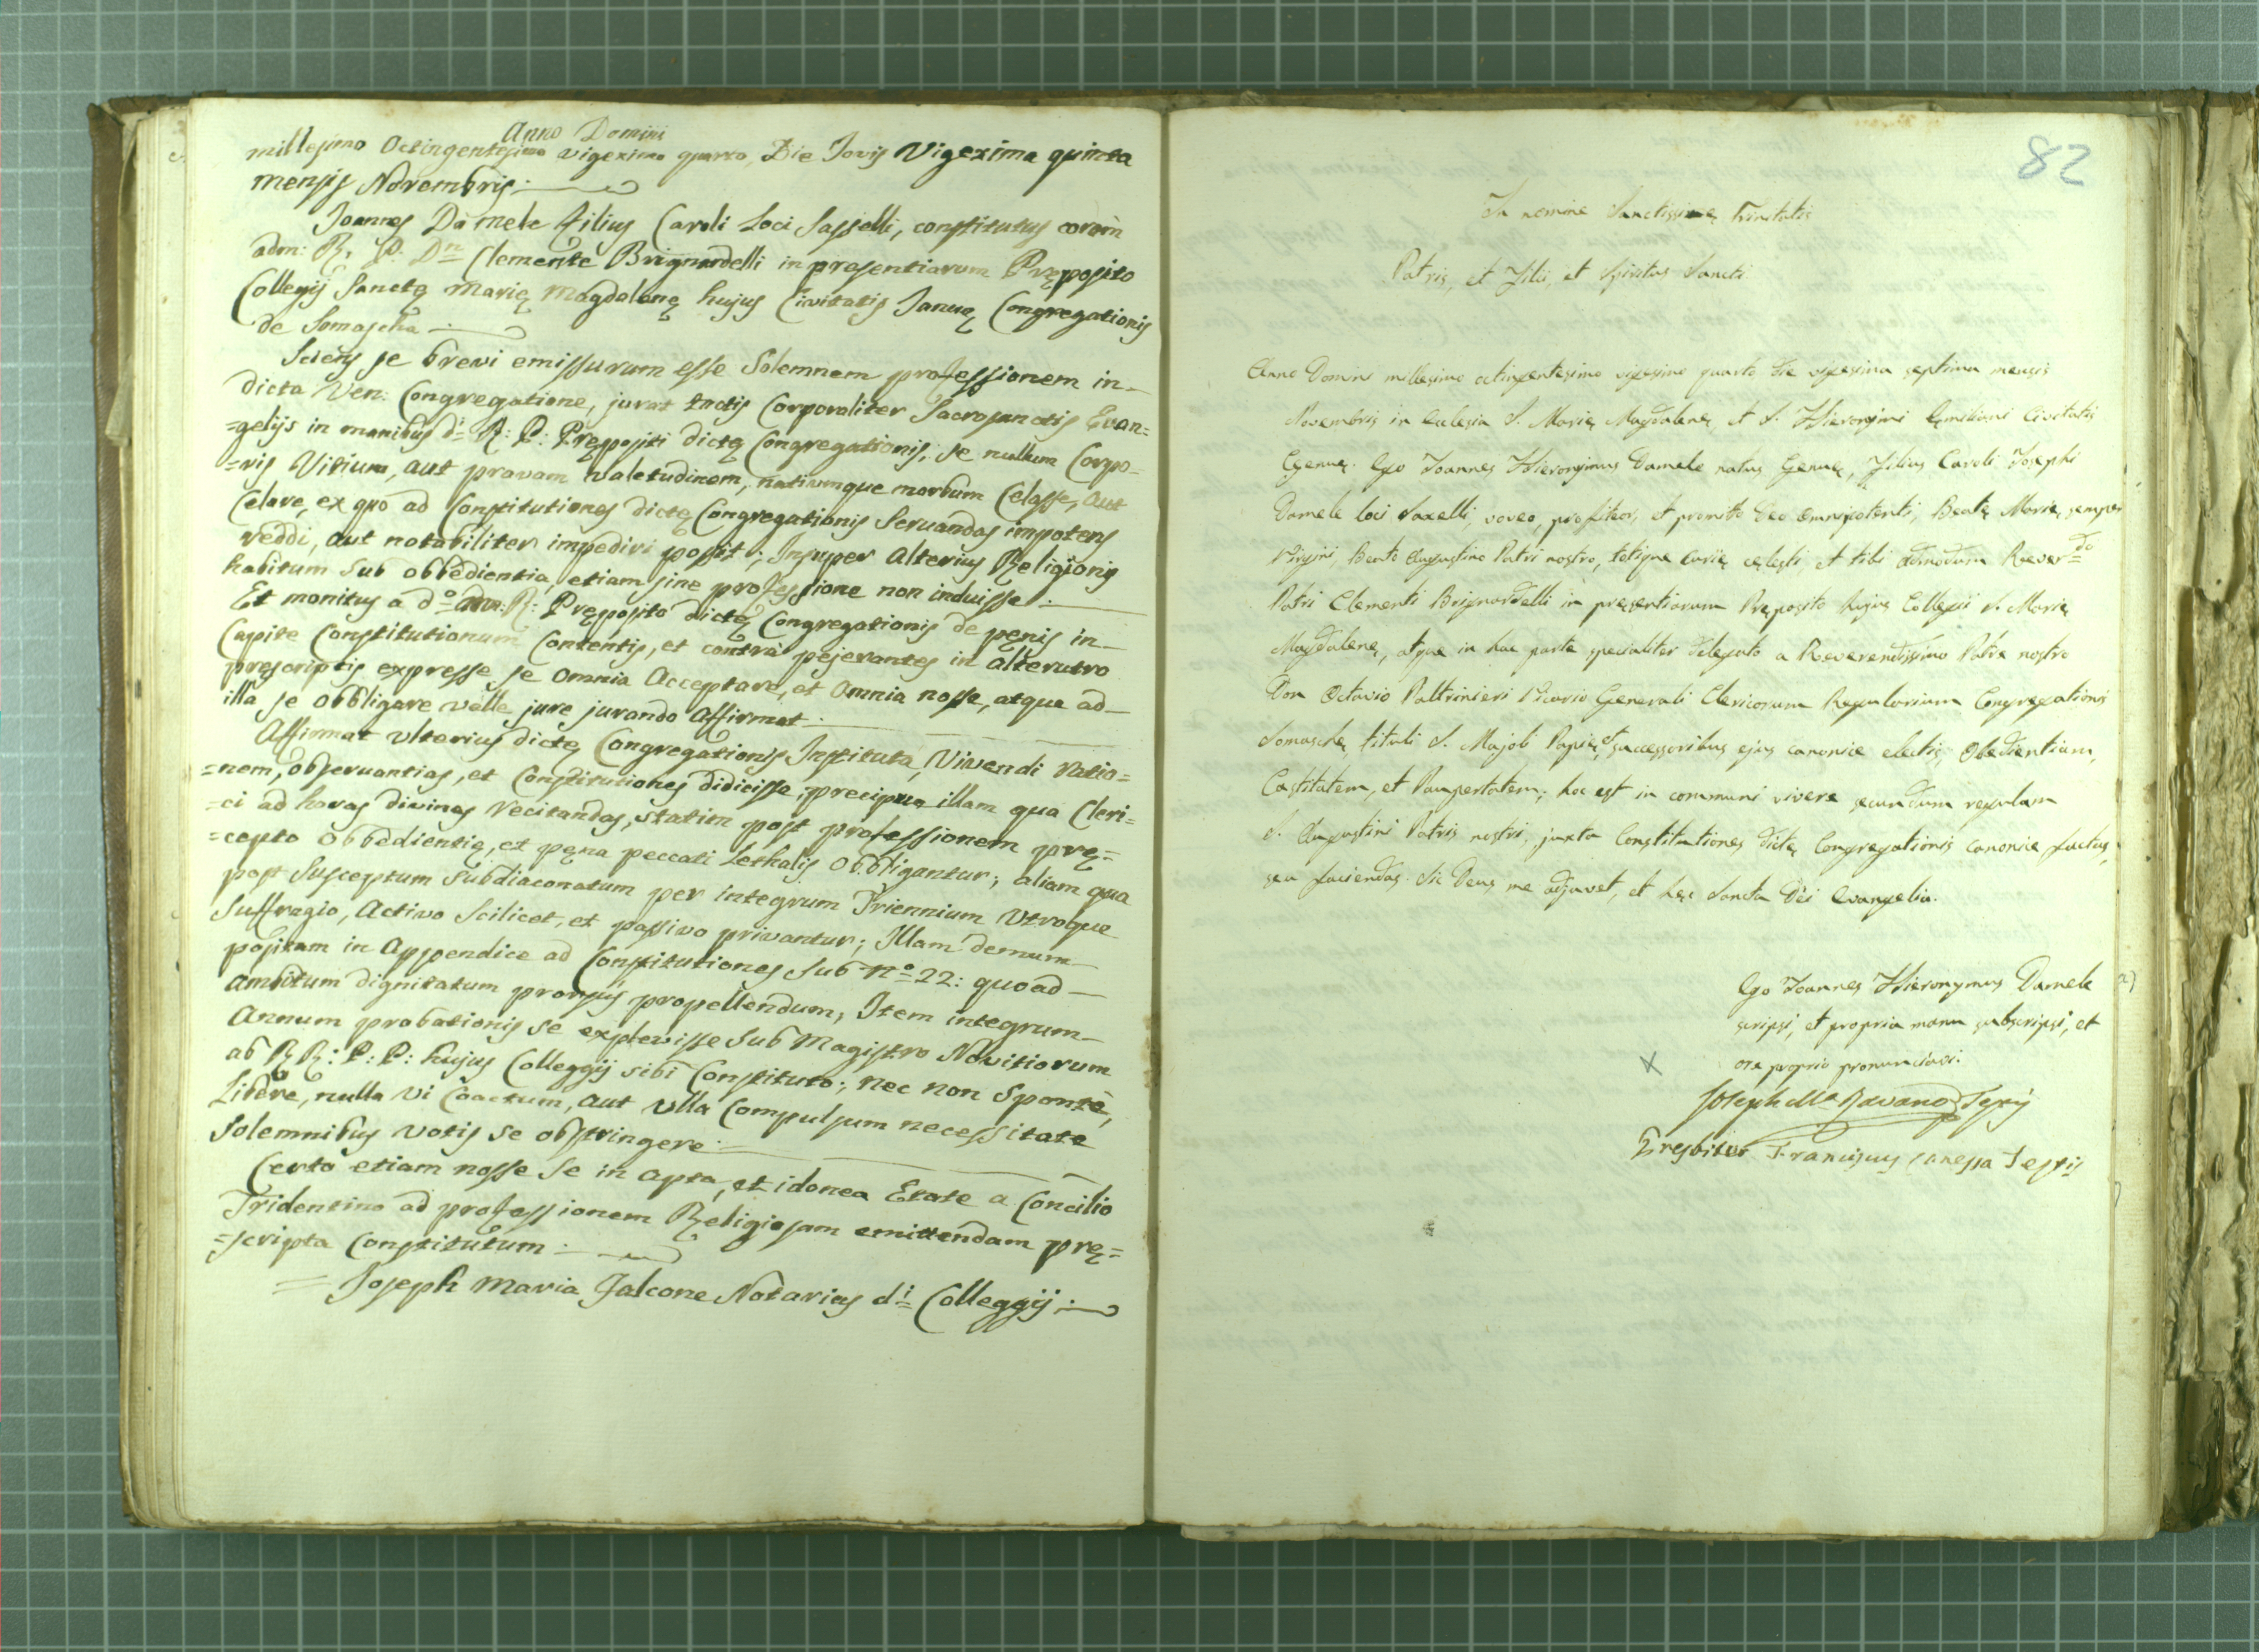 Anno Domini
millesimo Octingentesimo vigeximo quarto, Die Jovis Vigexima quinta
mensis Novembris:
Joannes Damele filius Caroli Loci Sasselli, constitutus coram
adm: R. P. Dn Clemente Brignardelli in prasentiarum Pręposito
Collegij Sanctę Marię Magdalenę hujus Civitatis Januę Congregationis
de Somascha
Sciens se brevi emissurum esse Solemnem professionem in
dicta Ven: Congregatione, jurat tactis Corporaliter Sacrosanctis Evan=
=gelijs in manibus di R: P: Prępositi dictę Congregationis; se nullum Corpo=
=ris Vitium, aut pravam valetudinem, nativumque morbum Celasse, aut
Celare, ex quo ad Constitutiones dictę Congregationis Servandas impotens
reddi, aut notabiliter impediri possit; Insuper alterius Religionis
habitum sub obbedientia, etiam sine professione non induisse:
Et monitus a do adm: R: Pręposito dictę Congregationis de pęnis in
Capite Constitutionum Contentis, et contrà pejerantes in alterutro
pręscriptis expresse se omnia Acceptare, et omnia nosse, atque ad
illa se obbligare velle jure jurando Affirmat:
Affirmat ulterius dictę Congregationis Instituta, Vivendi ratio=
=nem, observantias, et Constitutiones didicisse, precipue illam qua Cleri=
=ci ad horas divinas recitandas, statim post professionem prę=
=cepto obbedientię, et pęna peccati Lethalis obbligantur; aliam qua
post Susceptum Subdiaconatum per integrum Triennium Utroque
Suffragio, Activo Scilicet, et passivo privantur; Illam demum
positam in Appendice ad Constitutiones Sub No 22: quoad
ambitum dignitatum prorsus propellendum, Item integrum
Annum probationis se explevisse Sub Magistro Novitiorum
ab R R: P: P: hujus Colleggij sibi Constituto; nec non Spontè,
Liberè, nulla vi Coactum, aut ulla Compulsum necessitate
Solemnibus votis se obstringere:
Certo etiam nosse Se in apta, et idonea Etate a Concilio
Tridentino ad professionem Religiosam emittendam prę=
=scripta Constitutum:
= Joseph Maria Falcone Notarius di Colleggij:
82
In nomine Sanctissimę Trinitatis
Patris, et Filii, et Spiritus Sancti
Anno Domini millesimo octingentesimo vigesimo quarto die vigesima septima mensis
Novembris in Ecclesia S. Marię Magdalenę, et S. Hieronymi Ęmiliani Civitatis
Genuę. Ego Joannes Hieronymus Damele natus Genuę, Filius Caroli Josephi
Damele loci Saxelli, voveo, profiteor, et promitto Deo omnipotenti, Beatę Marię semper
Virgini, Beato Augustino Patri nostro, totique curię cęlesti et tibi admodum Reverdo
Patri Clementi Brignardelli in presentiarum Pręposito hujus Collegii S. Marię
Magdalenę, atque in hac parte specialiter delegato a Reverendissimo Patre nostro
Don Octavio Paltrinieri Vicario Generali Clericorum Regularium Congregationis
Somaschę tituli S. Majoli Papię, et successoribus ejus canonice electis, Obedientiam,
Castitatem, et Paupertatem; hoc est in communi vivere secundum regulam
S. Augustini Patris nostri, juxta Constitutiones dictę Congregationis canonice factas,
seu faciendas. Sic Deus me adjuvet, et hęc Sancta Dei Evangelia.
Ego Joannes Hieronymus Damele
scripsi, et propria manu subscripsi, et
ore proprio pronunciavi.
Joseph Ma Ravano Testis
Presbiter Franciscus Canessa Testis